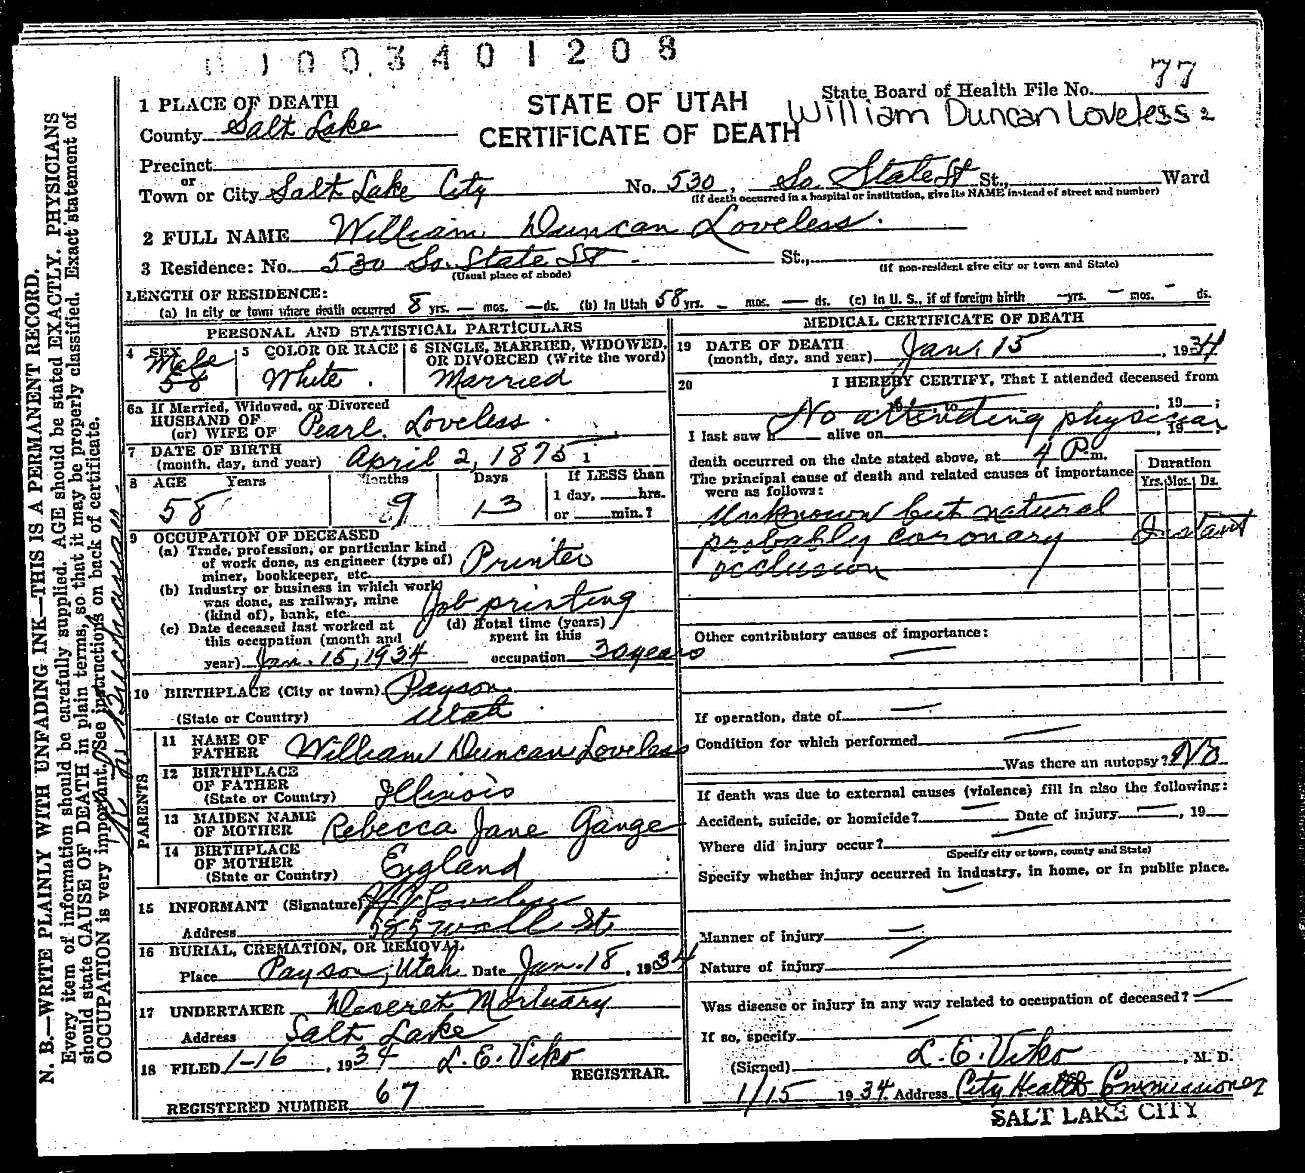 1003401208
State Board of Health File No. 77
STATE OF UTAH
CERTIFICATE OF DEATH
William Duncan Loveless 2
1 PLACE OF DEATH
County Salt Lake
Precinct
or
Town or City Salt Lake City No. 530, So. State St St., Ward
(If death occurred in a hospital or institution, give its NAME instead of street and number)
2 FULL NAME William Duncan Loveless.
3 Residence: No. 530 So. State St. St.,
(Usual place of abode) (If non-resident give city or town and State)
LENGTH OF RESIDENCE:
(a) In city or town where death occurred 8 yrs. — mos. — ds. (b) In Utah 58 yrs. — mos. — ds. (c) In U. S., if of foreign birth — yrs. — mos. — ds.
PERSONAL AND STATISTICAL PARTICULARS
4 SEX Male 58
5 COLOR OR RACE White.
6 SINGLE, MARRIED, WIDOWED, OR DIVORCED (Write the word) Married
6a If Married, Widowed, or Divorced
HUSBAND OF
(or) WIFE OF Pearl Loveless.
7 DATE OF BIRTH
(month, day, and year) April 2, 1875
8 AGE Years Months Days If LESS than
58 9 13 1 day, hrs.
or min.?
9 OCCUPATION OF DECEASED
(a) Trade, profession, or particular kind
of work done, as engineer (type of)
miner, bookkeeper, etc. Printer
(b) Industry or business in which work
was done, as railway, mine
(kind of), bank, etc. Job printing
(c) Date deceased last worked at
this occupation (month and
year) Jan. 15, 1934
(d) Total time (years)
spent in this
occupation 30 years
10 BIRTHPLACE (City or town) Payson
(State or Country) Utah
PARENTS
11 NAME OF
FATHER William Duncan Loveless
12 BIRTHPLACE
OF FATHER
(State or Country) Illinois
13 MAIDEN NAME
OF MOTHER Rebecca Jane Gange
14 BIRTHPLACE
OF MOTHER
(State or Country) England
15 INFORMANT (Signature) Loveless
Address 585 Wall St.
16 BURIAL, CREMATION, OR REMOVAL
Place Payson, Utah Date Jan. 18, 1934
17 UNDERTAKER Deseret Mortuary
Address Salt Lake
18 FILED 1-16, 1934 L. E. Viko
REGISTRAR.
REGISTERED NUMBER 67
MEDICAL CERTIFICATE OF DEATH
19 DATE OF DEATH
(month, day, and year) Jan. 15, 1934
20 I HEREBY CERTIFY, That I attended deceased from
, 19 ;
No attending physician
I last saw h alive on , 19 ,
death occurred on the date stated above, at 4 P.m.
The principal cause of death and related causes of importance
were as follows:
Duration
Yrs. Mos. Ds.
Unknown but natural
probably coronary Instant
occlusion
Other contributory causes of importance:
If operation, date of
Condition for which performed
Was there an autopsy? No
If death was due to external causes (violence) fill in also the following:
Accident, suicide, or homicide? Date of injury , 19
Where did injury occur?
(Specify city or town, county and State)
Specify whether injury occurred in industry, in home, or in public place.
Manner of injury
Nature of injury
Was disease or injury in any way related to occupation of deceased?
If so, specify
(Signed) L. E. Viko, M. D.
1/15 1934 Address City Health Commissioner
SALT LAKE CITY
N. B.—WRITE PLAINLY WITH UNFADING INK—THIS IS A PERMANENT RECORD.
Every item of information should be carefully supplied. AGE should be stated EXACTLY. PHYSICIANS
should state CAUSE OF DEATH in plain terms, so that it may be properly classified. Exact statement of
OCCUPATION is very important. See instructions on back of certificate.